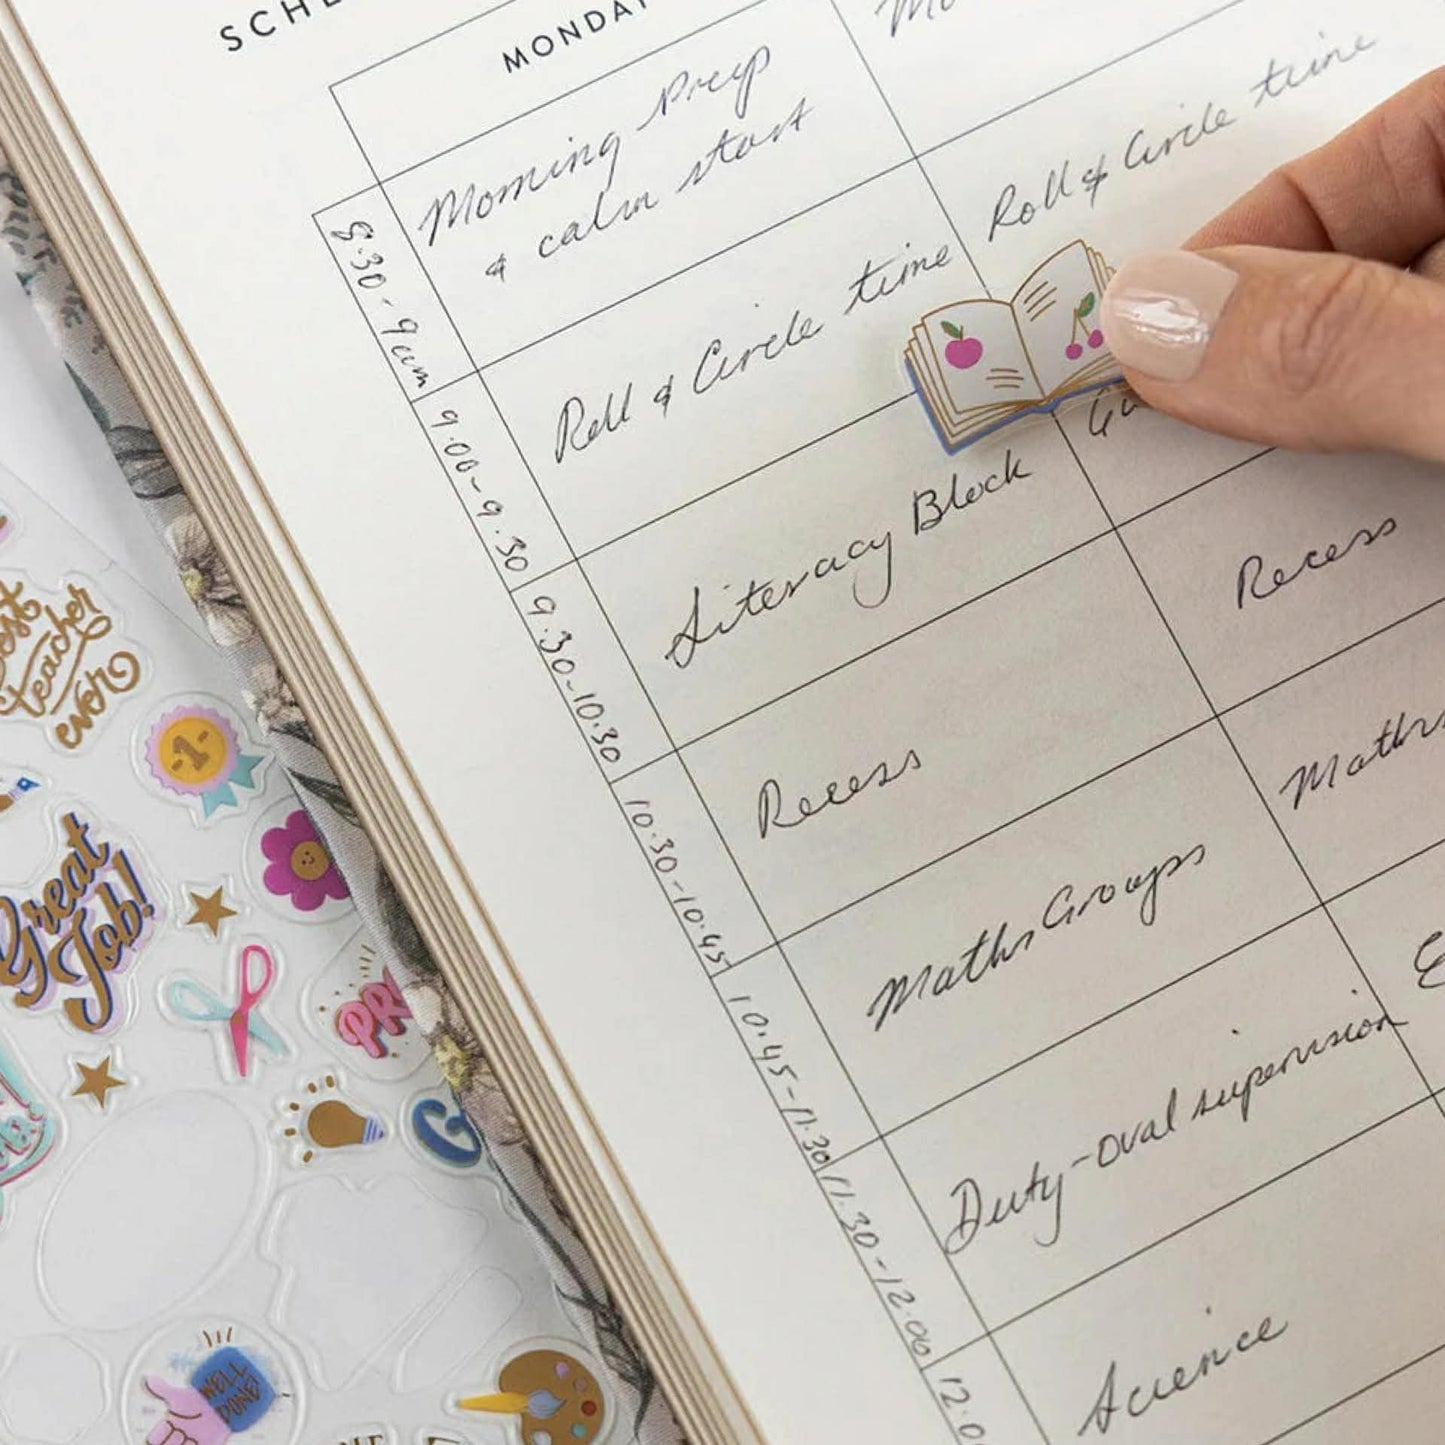 MONDAY
8.30-9am
Morning Prep
& calm start
9.00-9.30
Roll & Circle time
Roll & Circle time
9.30-10.30
Literacy Block
10.30-10.45
Recess
Recess
10.45-11.30
Maths Groups
Maths
11.30-12.00
Duty-oval supervision
Science
Best
teacher
ever
-1-
Great
Job!
WELL
DONE!